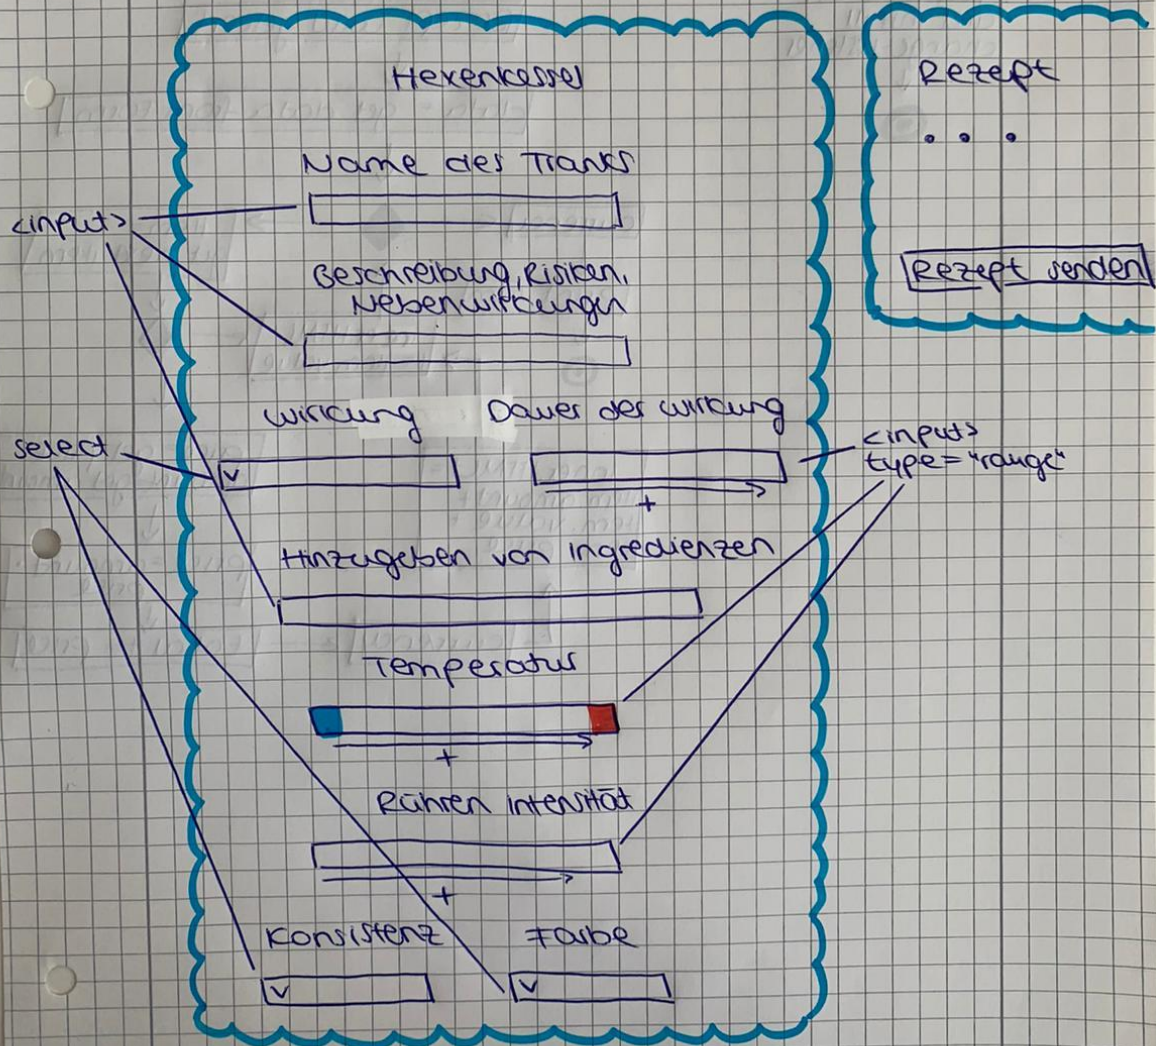 Hexenkessel
Name des Tranks
<input>
Beschreibung, Risiken,
Nebenwirkungen
Wirkung
Dauer der Wirkung
select
<input>
type="range"
+
Hinzugeben von Ingredienzen
Temperatur
+
Rühren Intensität
+
Konsistenz
Farbe
Rezept
...
Rezept senden